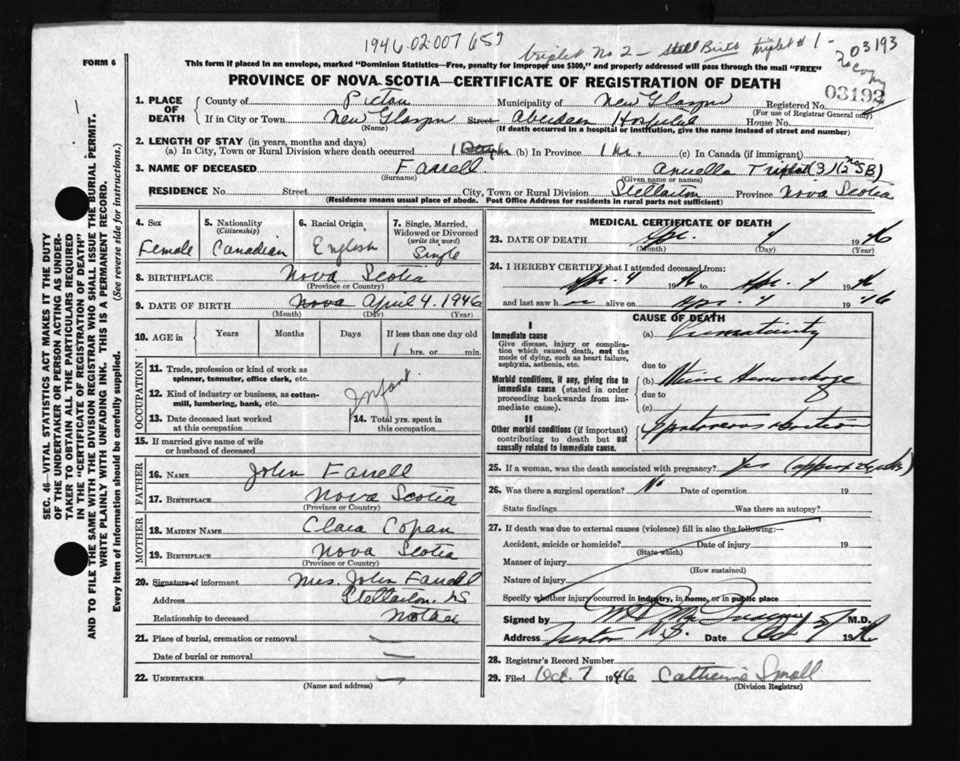 1946-02-007657
triplet No 2 - Still Birth triplet #1 -
03193
FORM 6
This form if placed in an envelope, marked "Dominion Statistics—Free, penalty for improper use $300," and properly addressed will pass through the mail "FREE"
PROVINCE OF NOVA SCOTIA—CERTIFICATE OF REGISTRATION OF DEATH
03192
1. PLACE OF DEATH
County of Pictou Municipality of New Glasgow Registered No.
(For use of Registrar General only)
If in City or Town New Glasgow Street Aberdeen Hospital House No.
(Name) (If death occurred in a hospital or institution, give the name instead of street and number)
2. LENGTH OF STAY (in years, months and days)
(a) In City, Town or Rural Division where death occurred 1 (b) In Province 1 hr. (c) In Canada (if immigrant)
3. NAME OF DECEASED Farrell Triplet (3) (2 SB)
(Surname) (Given name or names)
RESIDENCE No. Street City, Town or Rural Division Stellarton Province Nova Scotia
(Residence means usual place of abode. Post Office Address for residents in rural parts not sufficient)
4. Sex
Female
5. Nationality
(Citizenship)
Canadian
6. Racial Origin
English
7. Single, Married, Widowed or Divorced
(write the word)
Single
8. BIRTHPLACE Nova Scotia
(Province or Country)
9. DATE OF BIRTH Nova April 4. 1946
(Month) (Day) (Year)
10. AGE in Years Months Days If less than one day old
1 hrs. or min.
OCCUPATION
11. Trade, profession or kind of work as spinner, teamster, office clerk, etc.
12. Kind of industry or business, as cotton-mill, lumbering, bank, etc.
Infant
13. Date deceased last worked at this occupation
14. Total yrs. spent in this occupation
15. If married give name of wife or husband of deceased
FATHER
16. NAME John Farrell
17. BIRTHPLACE Nova Scotia
(Province or Country)
MOTHER
18. MAIDEN NAME Clara Copan
19. BIRTHPLACE Nova Scotia
(Province or Country)
20. Signature of informant Mrs. John Farrell
Address Stellarton, NS
Relationship to deceased Mother
21. Place of burial, cremation or removal
Date of burial or removal
22. UNDERTAKER
(Name and address)
MEDICAL CERTIFICATE OF DEATH
23. DATE OF DEATH Apr. 4 1946
(Month) (Day) (Year)
24. I HEREBY CERTIFY that I attended deceased from:
Apr. 4 1946 to Apr. 4 1946
and last saw h er alive on Apr 4 1946
CAUSE OF DEATH
I
Immediate cause
Give disease, injury or complication which caused death, not the mode of dying, such as heart failure, asphyxia, asthenia, etc.
(a) Prematurity
due to
Morbid conditions, if any, giving rise to immediate cause (stated in order proceeding backwards from immediate cause).
(b) Uterine Hemorrhage
due to
(c)
II
Other morbid conditions (if important) contributing to death but not causally related to immediate cause.
Spontaneous abortion
25. If a woman, was the death associated with pregnancy? Yes
26. Was there a surgical operation? No Date of operation 19
State findings Was there an autopsy?
27. If death was due to external causes (violence) fill in also the following:—
Accident, suicide or homicide? Date of injury 19
(State which)
Manner of injury
(How sustained)
Nature of injury
Specify whether injury occurred in industry, in home, or in public place
Signed by M.D.
Address N.S. Date Oct 1946
28. Registrar's Record Number
29. Filed Oct. 7 1946 Catherine Small
(Division Registrar)
SEC. 46—VITAL STATISTICS ACT MAKES IT THE DUTY
OF THE UNDERTAKER OR PERSON ACTING AS UNDER-
TAKER TO OBTAIN ALL THE PARTICULARS REQUIRED
IN THE "CERTIFICATE OF REGISTRATION OF DEATH"
AND TO FILE THE SAME WITH THE DIVISION REGISTRAR WHO SHALL ISSUE THE BURIAL PERMIT.
WRITE PLAINLY WITH UNFADING INK. THIS IS A PERMANENT RECORD.
Every item of information should be carefully supplied. (See reverse side for instructions.)